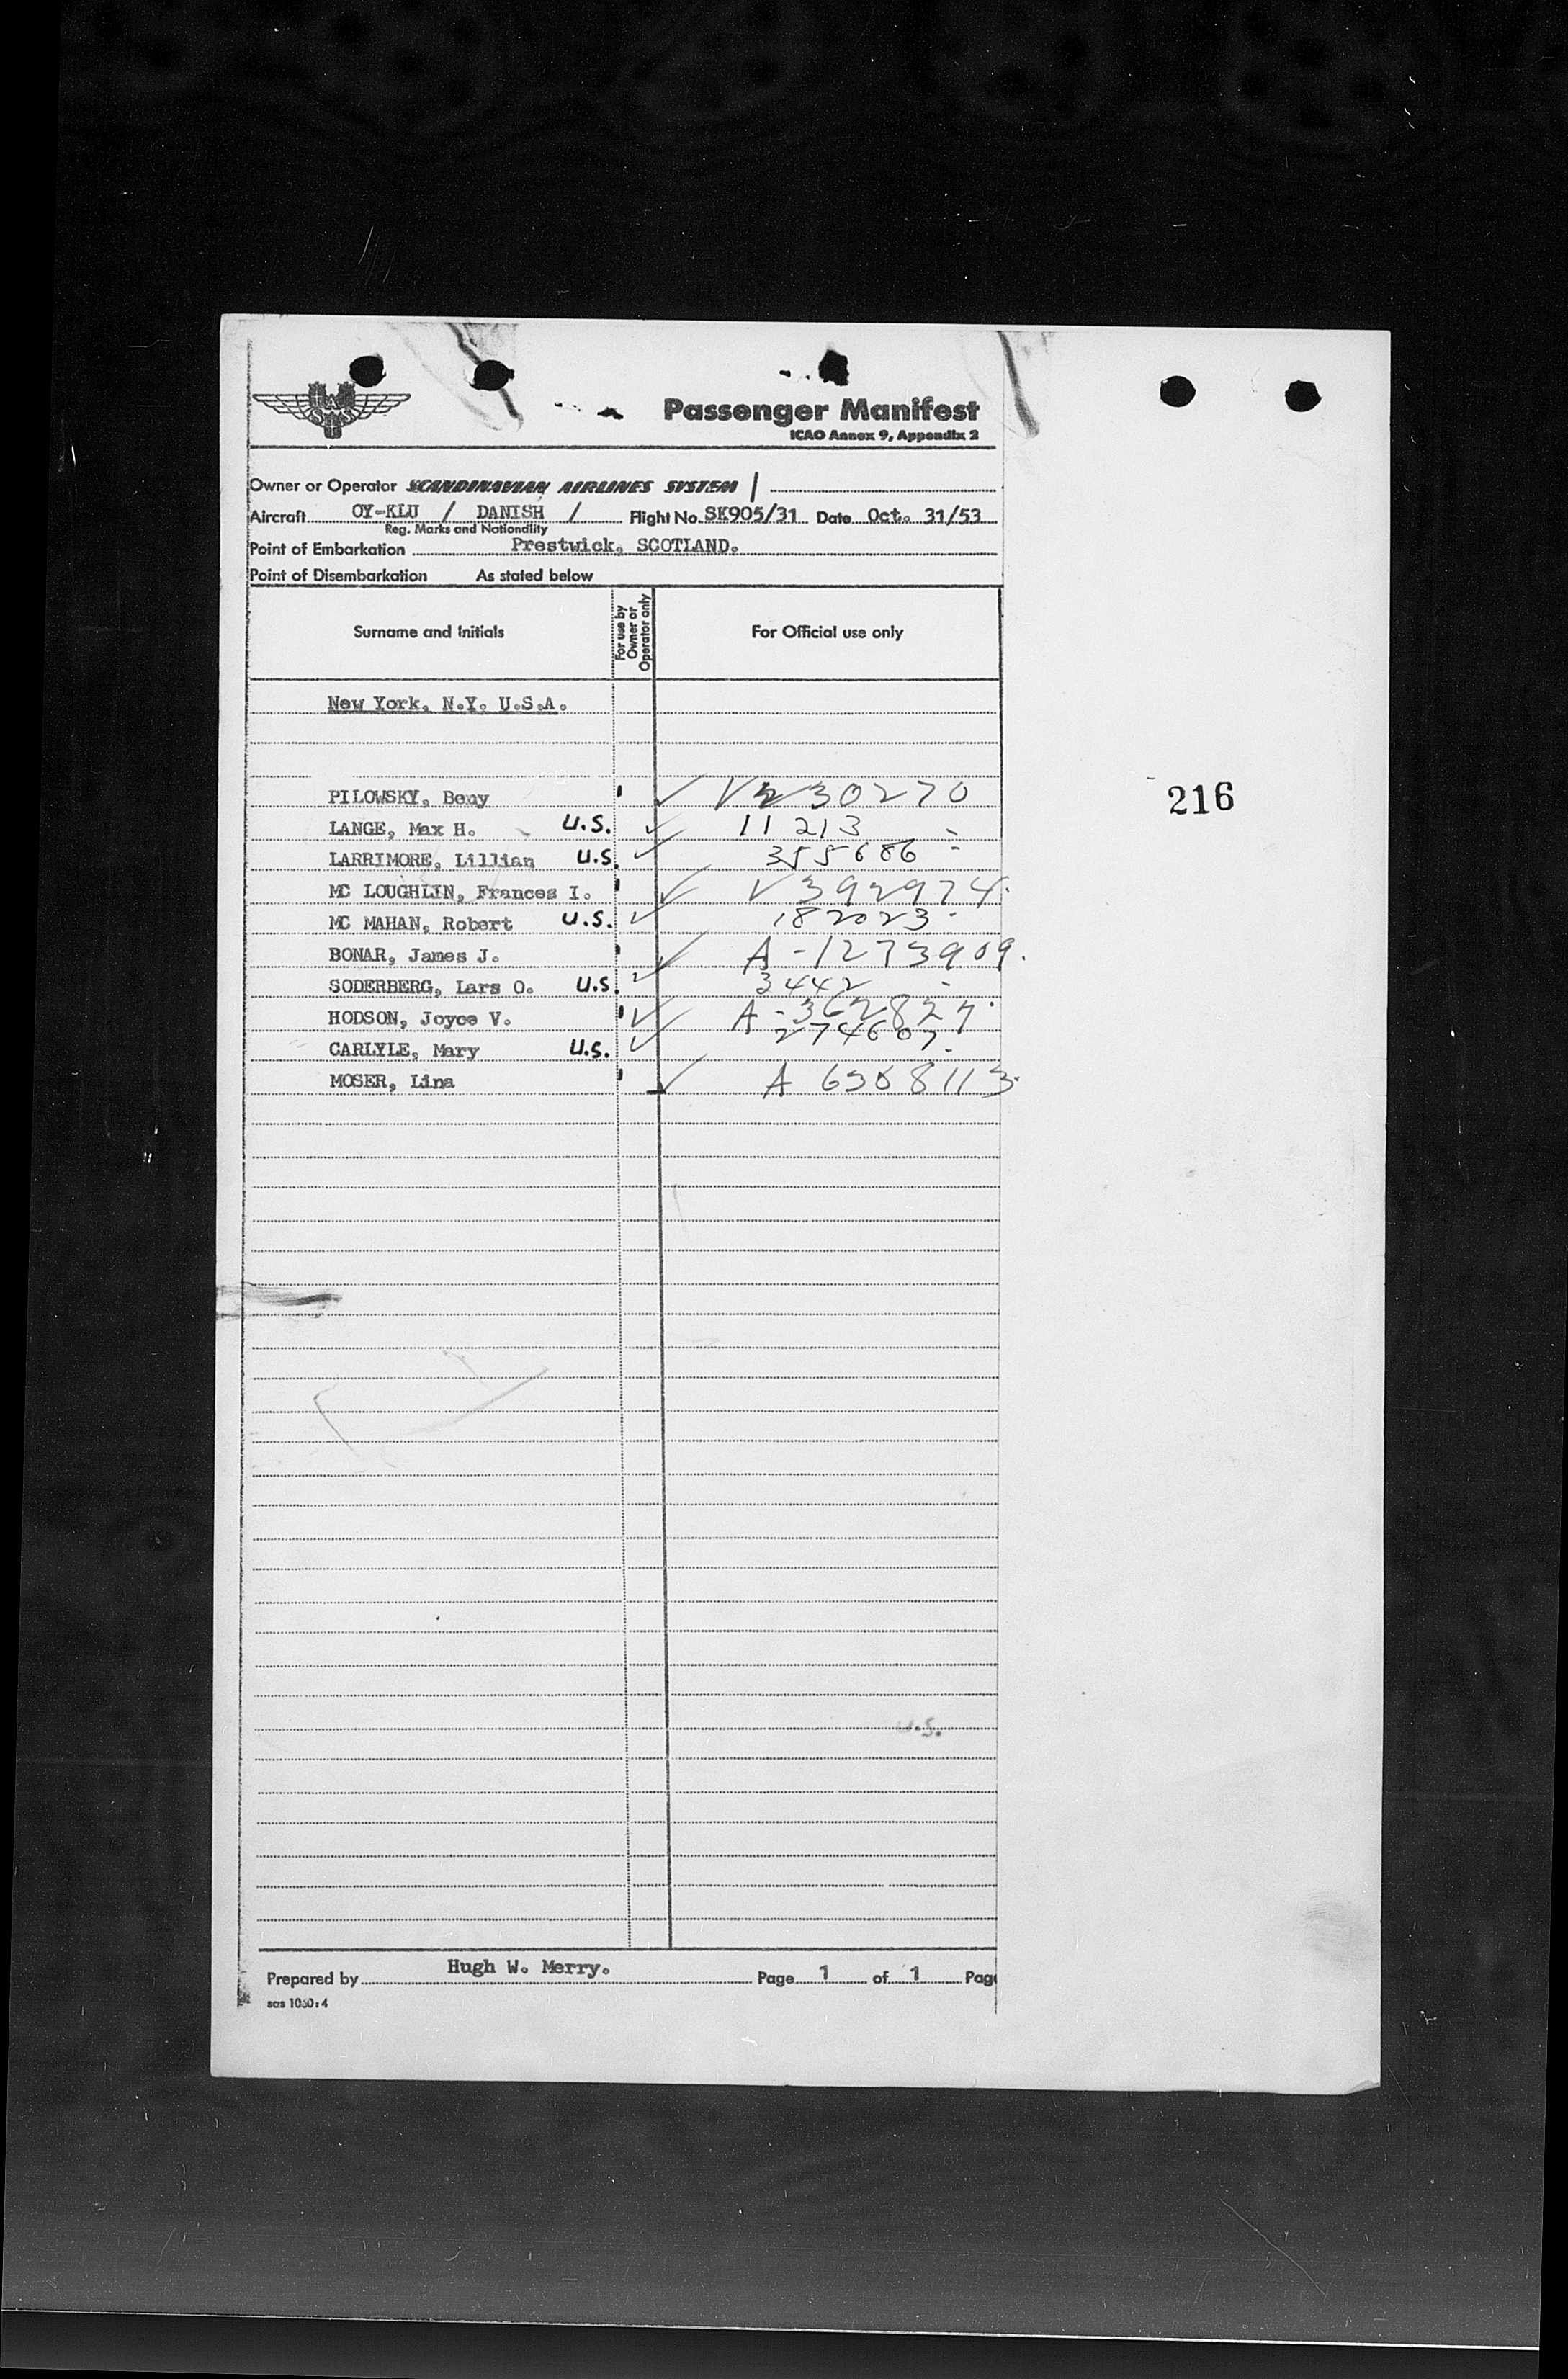 SAS
Passenger Manifest
ICAO Annex 9, Appendix 2
Owner or Operator SCANDINAVIAN AIRLINES SYSTEM
Aircraft OY-KLU / DANISH / Flight No. SK905/31 Date Oct. 31/53
Reg. Marks and Nationality
Point of Embarkation Prestwick, SCOTLAND.
Point of Disembarkation As stated below
Surname and Initials For use by Owner or Operator only For Official use only
New York, N.Y. U.S.A.
PILOWSKY, Beny V230270
216
LANGE, Max H. U.S. 11213
LARRIMORE, Lillian U.S. 355686
MC LOUGHLIN, Frances I. V392974
MC MAHAN, Robert U.S. 182023
BONAR, James J. A-1273909.
SODERBERG, Lars O. U.S. 3442
HODSON, Joyce V. A-362827
CARLYLE, Mary U.S. 274607
MOSER, Lina A 6508113
U.S.
Prepared by Hugh W. Merry. Page 1 of 1 Pag
sas 1030:4